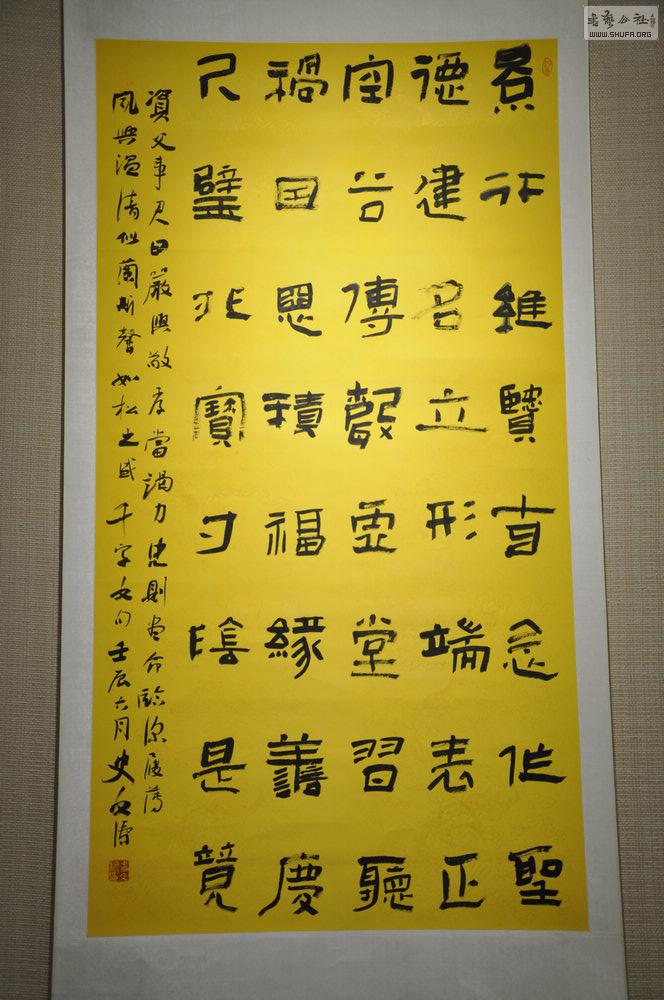 景行維賢首念作聖
德建名立形端表正
空谷傳聲虛堂習聽
禍因惡積福緣善慶
尺璧非寶寸陰是競
資父事君曰嚴與敬孝當竭力忠則盡命臨深履薄
夙興溫凊似蘭斯馨如松之盛千字文句壬辰六月史
WWW.SHUFA.ORG